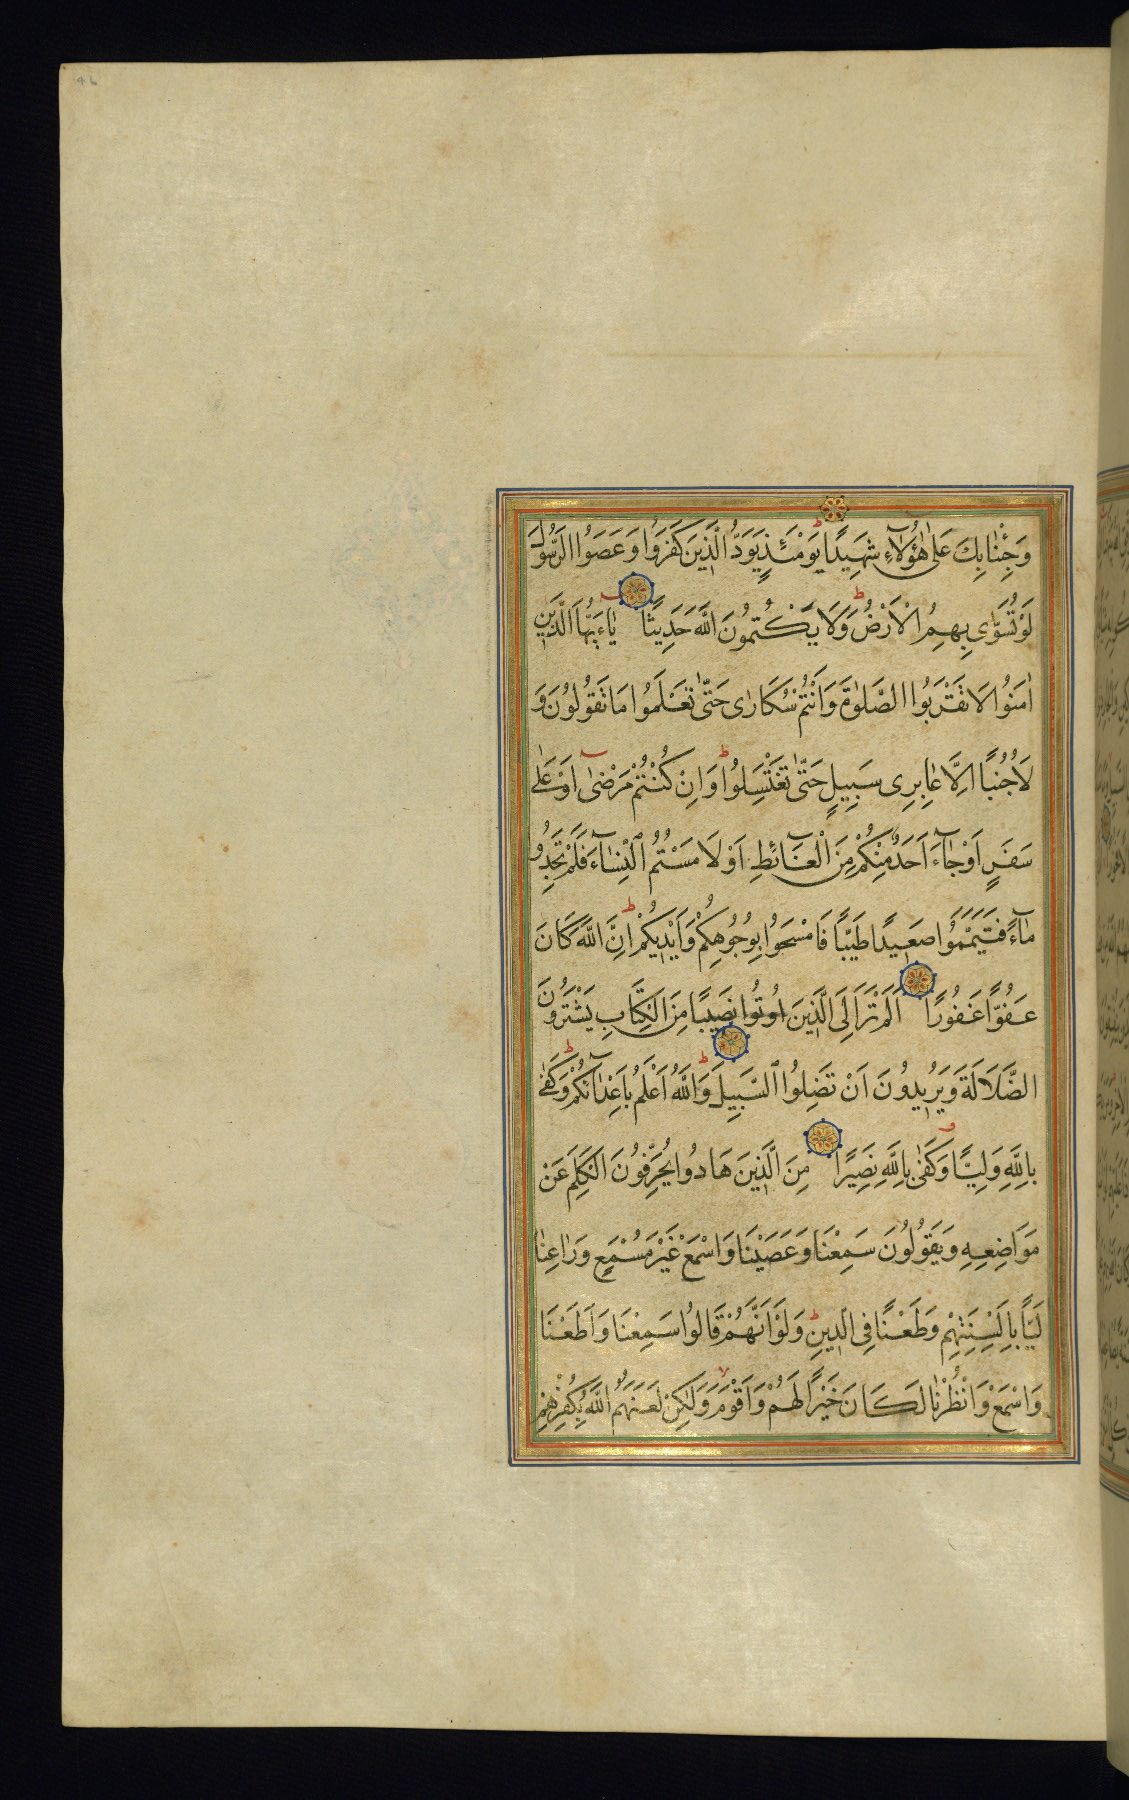 وَجِئْنَا بِكَ عَلٰى هٰٓؤُلَآءِ شَهٖيدًا يَوْمَئِذٍ يَوَدُّ الَّذٖينَ كَفَرُوا وَعَصَوُا الرَّسُولَ
لَوْ تُسَوّٰى بِهِمُ الْاَرْضُ وَلَا يَكْتُمُونَ اللّٰهَ حَدٖيثًا يَٓا اَيُّهَا الَّذٖينَ
اٰمَنُوا لَا تَقْرَبُوا الصَّلٰوةَ وَاَنْتُمْ سُكَارٰى حَتّٰى تَعْلَمُوا مَا تَقُولُونَ وَ
لَا جُنُبًا اِلَّا عَابِرٖى سَبٖيلٍ حَتّٰى تَغْتَسِلُوا وَاِنْ كُنْتُمْ مَرْضٰٓى اَوْ عَلٰى
سَفَرٍ اَوْ جَٓاءَ اَحَدٌ مِنْكُمْ مِنَ الْغَٓائِطِ اَوْ لَامَسْتُمُ النِّسَٓاءَ فَلَمْ تَجِدُوا
مَٓاءً فَتَيَمَّمُوا صَعٖيدًا طَيِّبًا فَامْسَحُوا بِوُجُوهِكُمْ وَاَيْدٖيكُمْ اِنَّ اللّٰهَ كَانَ
عَفُوًّا غَفُورًا اَلَمْ تَرَ اِلَى الَّذٖينَ اُوتُوا نَصٖيبًا مِنَ الْكِتَابِ يَشْتَرُونَ
الضَّلَالَةَ وَيُرٖيدُونَ اَنْ تَضِلُّوا السَّبٖيلَ وَاللّٰهُ اَعْلَمُ بِاَعْدَٓائِكُمْ وَكَفٰى
بِاللّٰهِ وَلِيًّا وَكَفٰى بِاللّٰهِ نَصٖيرًا مِنَ الَّذٖينَ هَادُوا يُحَرِّفُونَ الْكَلِمَ عَنْ
مَوَاضِعِهٖ وَيَقُولُونَ سَمِعْنَا وَعَصَيْنَا وَاسْمَعْ غَيْرَ مُسْمَعٍ وَرَاعِنَا
لَيًّا بِاَلْسِنَتِهِمْ وَطَعْنًا فِى الدّٖينِ وَلَوْ اَنَّهُمْ قَالُوا سَمِعْنَا وَاَطَعْنَا
وَاسْمَعْ وَانْظُرْنَا لَكَانَ خَيْرًا لَهُمْ وَاَقْوَمَ وَلٰكِنْ لَعَنَهُمُ اللّٰهُ بِكُفْرِهِمْ